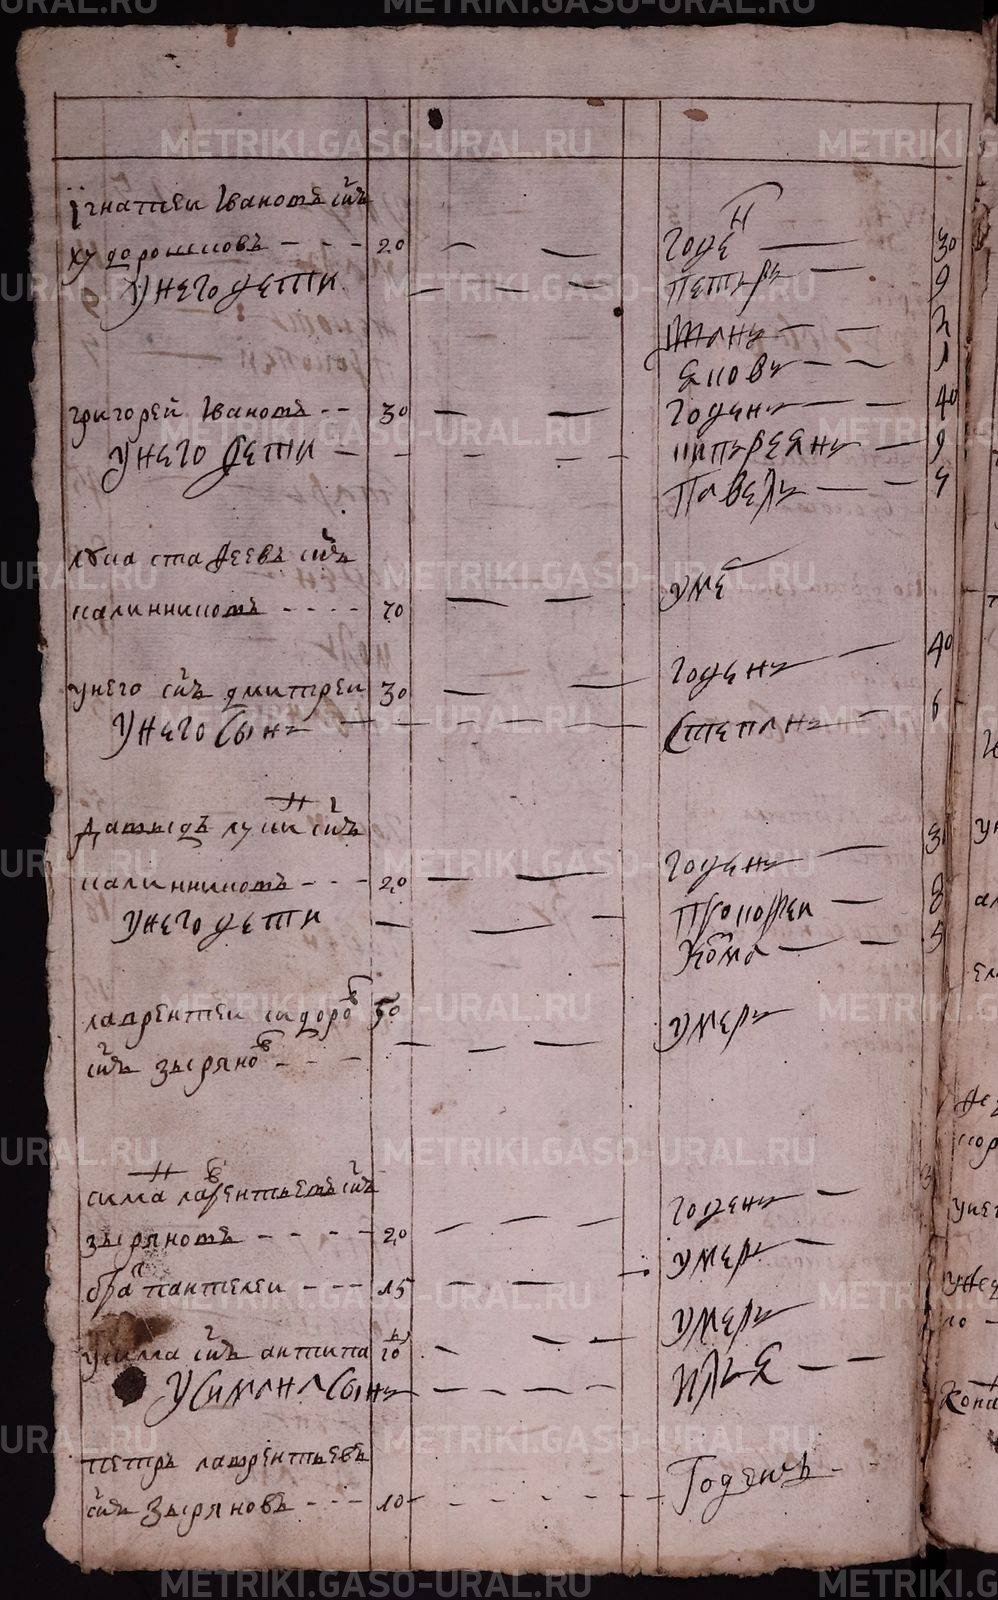 METRIKI.GASO-URAL.RU
Їгнатеи Ивановъ сн҃ъ
худорошковъ - - - 20 — — годе н — 30
У нево дети — — — Петръ — 9
Иванъ — — 2
Яковъ — — 1
григорей Ивановъ - - 30 — — годенъ — 40
У нево дети — — — — — киприянъ — 9
Павелъ — — 4
лука стафеевъ сн҃ъ
калинниковъ - - - - 70 — — уме
унего сн҃ъ дмитреи 30 — — годенъ — 40
У нево Сынъ — — — — — Степанъ — 6
давыдъ лукин сн҃ъ
калинниковъ - - - 20 — — годенъ — 3
У него дети — — — Прокофеи — 8
Кома — — 5
лаврентеи сидоров 50 умеръ
сн҃ъ зырянов - - - — — —
сима лаврентьевъ сн҃ъ годенъ —
зыряновъ - - - - 20 — — — умеръ —
брат пантелеи - - - 15 — — умеръ
усима сн҃ъ антипа 10 — — — илья — —
У Симана Сынъ — — — — —
петръ лаврентьевъ
сн҃ъ Зыряновъ - - - 10 - - - - - Годенъ - -